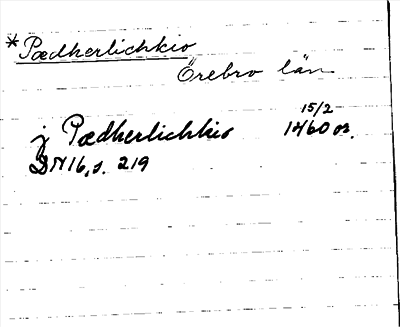 *Pædherlichkio
Örebro län
15/2
j Pædherlichkio 1460 or.
DN 16, s. 219